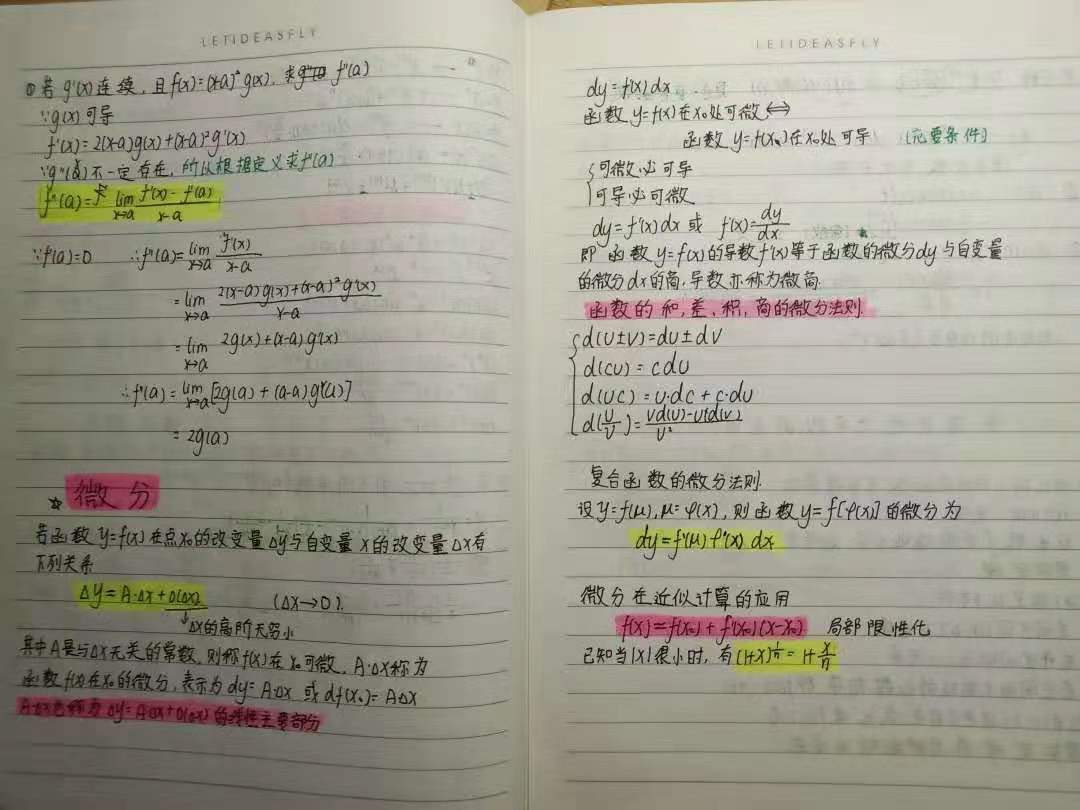 LETIDEASFLY
① 若 g'(x) 连续, 且 f(x)=(x-a)² g(x), 求 f''(a)
∵g(x) 可导
f'(x)=2(x-a)g(x)+(x-a)²g'(x)
∵g''(x) 不一定存在, 所以根据定义求f''(a)
f''(a)= lim x→a f'(x)-f'(a) / x-a
∵f'(a)=0 ∴f''(a)= lim x→a f'(x) / x-a
= lim x→a 2(x-a)g(x)+(x-a)²g'(x) / x-a
= lim x→a 2g(x)+(x-a)g'(x)
∴f''(a)= lim x→a [2g(a)+(a-a)g'(a)]
= 2g(a)
☆ 微分
若函数 y=f(x) 在点x₀的改变量Δy与自变量 x 的改变量 Δx有
下列关系
Δy=A·Δx+o(Δx) (Δx→0).
↓Δx的高阶无穷小
其中A是与Δx无关的常数, 则称f(x)在x₀可微, A·Δx称为
函数f(x)在x₀的微分, 表示为dy=A·Δx 或 df(x₀)=AΔx
A·Δx也称为 Δy=A·Δx+o(Δx) 的线性主要部分
LETIDEASFLY
dy=f'(x)dx
函数 y=f(x)在x₀处可微⟺
函数 y=f(x)在x₀处可导 (充要条件)
{可微必可导
可导必可微
dy=f'(x)dx 或 f'(x)=dy/dx
即函数 y=f(x)的导数f'(x)等于函数的微分dy与自变量
的微分dx的商, 导数亦称为微商.
函数的和,差,积,商的微分法则.
{d(U±V)=dU±dV
d(CU)=CdU
d(UC)=U·dC+C·dU
d(U/V)=Vd(U)-Ud(V)/V²
复合函数的微分法则.
设 y=f(μ), μ=φ(x), 则函数y=f[φ(x)]的微分为
dy=f'(μ)φ'(x).dx
微分在近似计算的应用
f(x)=f(x₀)+f'(x₀)(x-x₀) 局部限性化
已知当|x|很小时, 有(1+x)^{1/n}=1+x/n